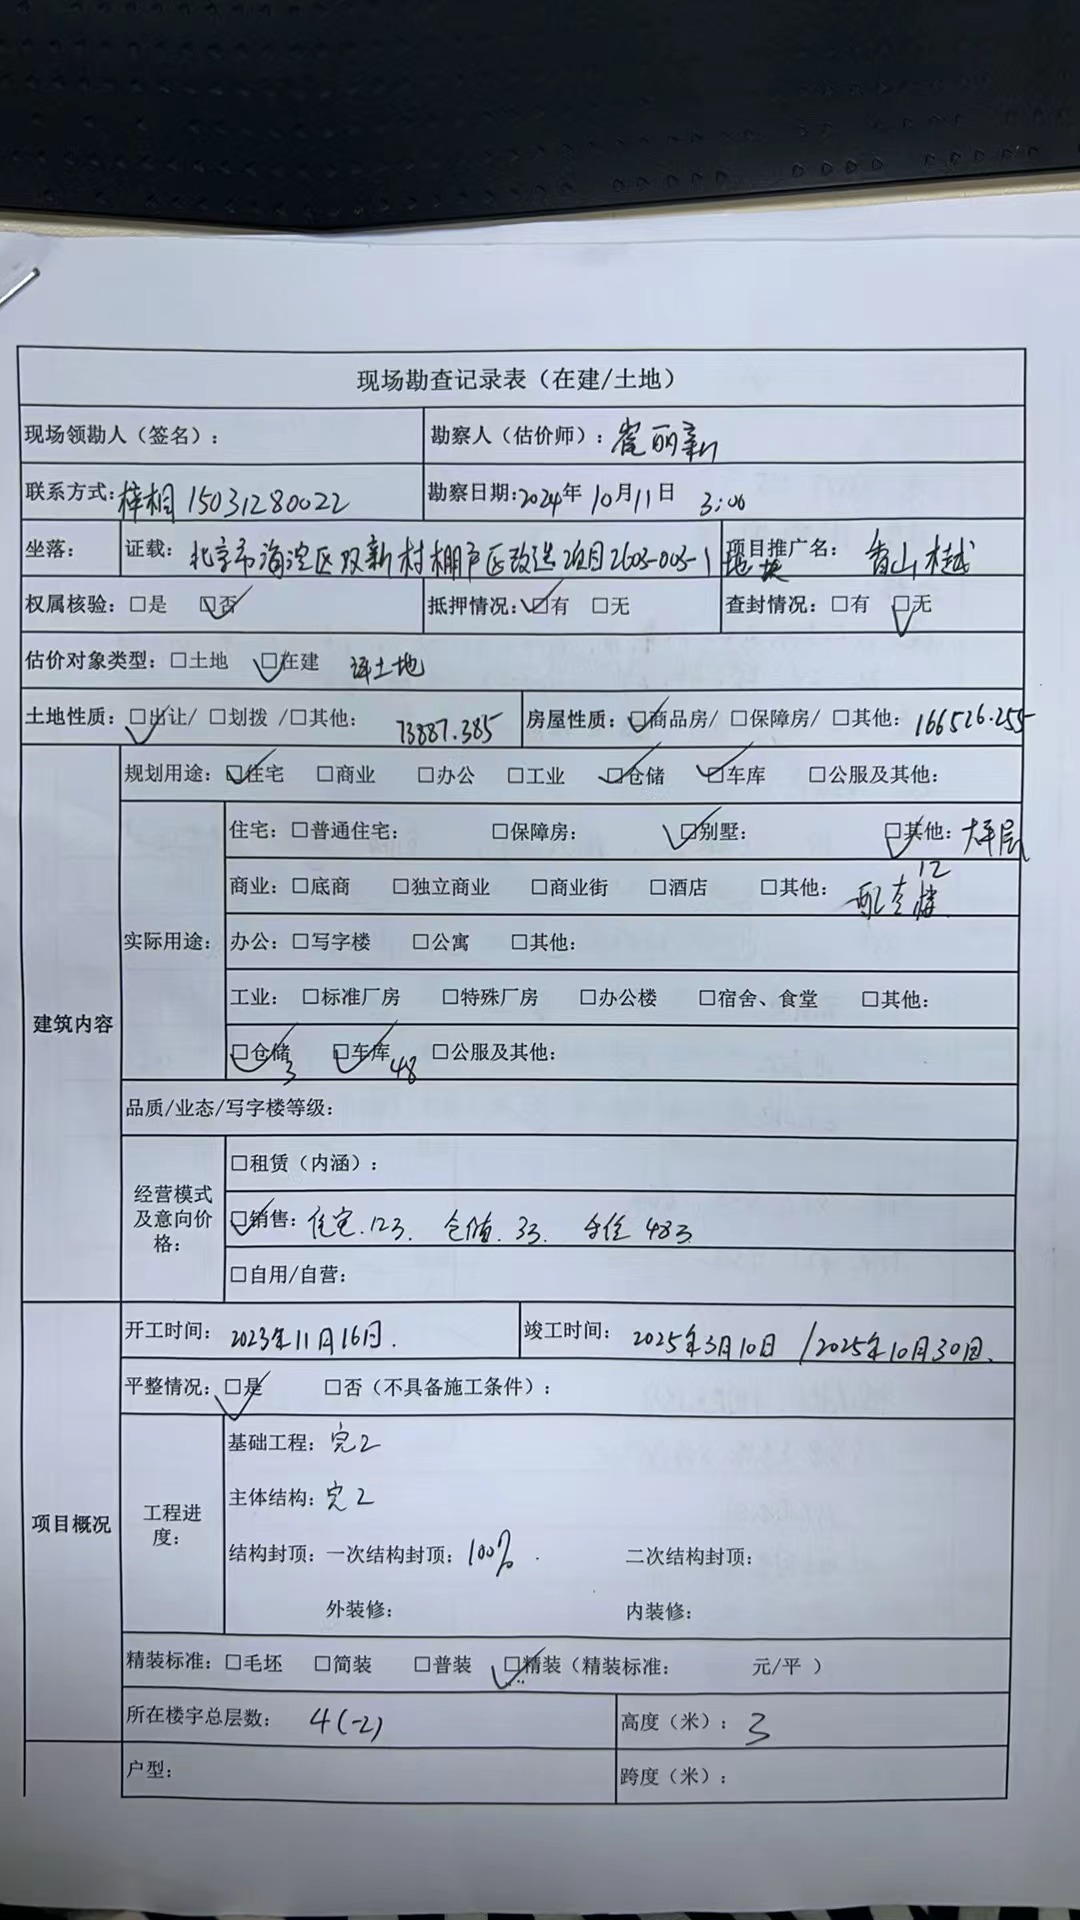 现场勘查记录表（在建/土地）
现场领勘人（签名）： 勘察人（估价师）：崔丽新
联系方式：梓桐 15031280022 勘察日期：2024年10月11日 3:00
坐落： 证载：北京市海淀区双新村棚户区改造项目2603-003-1地块 项目推广名：香山樾
权属核验：□是 ☑否 抵押情况：☑有 □无 查封情况：□有 ☑无
估价对象类型：□土地 ☑在建 土地
土地性质：☑出让/ □划拨 /□其他： 73887.385 房屋性质：☑商品房/ □保障房/ □其他：166526.255
建筑内容
规划用途：☑住宅 □商业 □办公 □工业 ☑仓储 ☑车库 □公服及其他：
实际用途：
住宅：□普通住宅： □保障房： ☑别墅： ☑其他：大平层
商业：□底商 □独立商业 □商业街 □酒店 □其他： 12
办公：□写字楼 □公寓 □其他：
工业：□标准厂房 □特殊厂房 □办公楼 □宿舍、食堂 □其他：
☑仓储 3 ☑车库 48 □公服及其他：
品质/业态/写字楼等级：
经营模式及意向价格：
□租赁（内涵）：
☑销售：住宅.123. 仓储.33. 483
□自用/自营：
项目概况
开工时间：2023年11月16日. 竣工时间：2025年3月10日 /2025年10月30日.
平整情况：☑是 □否（不具备施工条件）：
工程进度：
基础工程：完工
主体结构：完工
结构封顶：一次结构封顶：100%. 二次结构封顶：
外装修： 内装修：
精装标准：□毛坯 □简装 □普装 ☑精装（精装标准： 元/平 ）
所在楼宇总层数：4(-2) 高度（米）：3
户型： 跨度（米）：